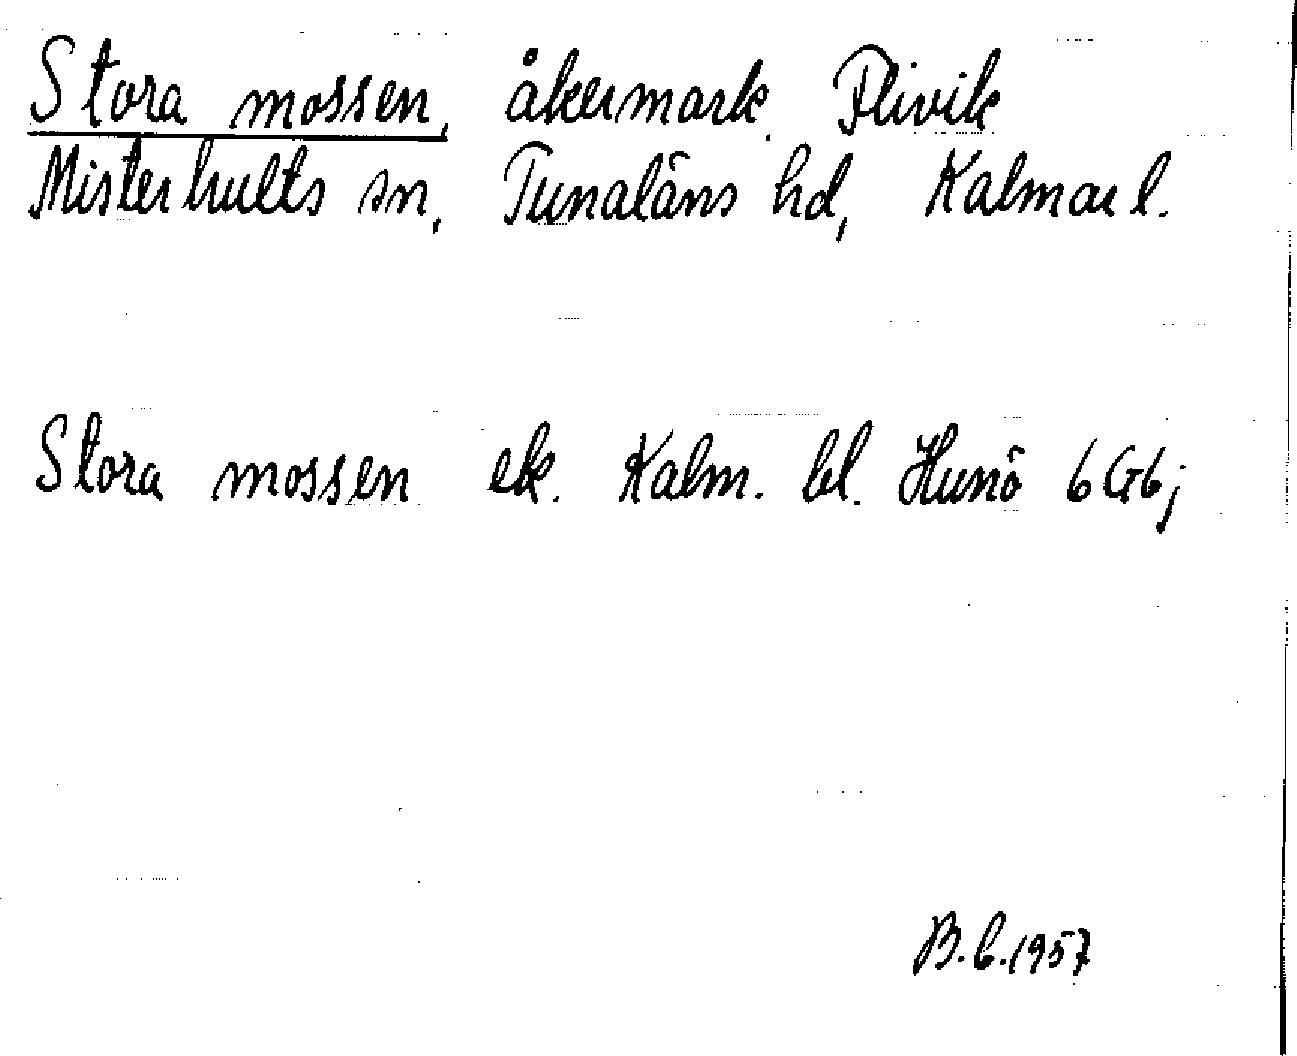 Stora mossen, åkermark Plivik
Misterhults sn, Tunaläns hd, Kalmar l.
Stora mossen ek. Kalm. bl. Hunö 6G6j
B.C.1957